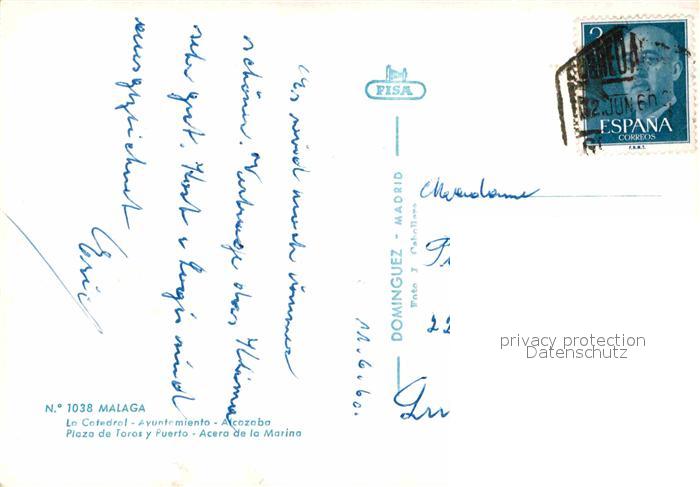 Es wird noch immer
schöner. Vertrage das Klima
sehr gut. Kost & Logis sind
ausgezeichnet
Eric
11.6.60.
FISA
DOMINGUEZ - MADRID
Foto J. Caballero
2
12.JUN.60
ESPAÑA
CORREOS
F.N.M.T.
Madame
22
privacy protection
Datenschutz
N.º 1038 MALAGA
La Catedral - Ayuntamiento - Alcazaba
Plaza de Toros y Puerto - Acera de la Marina